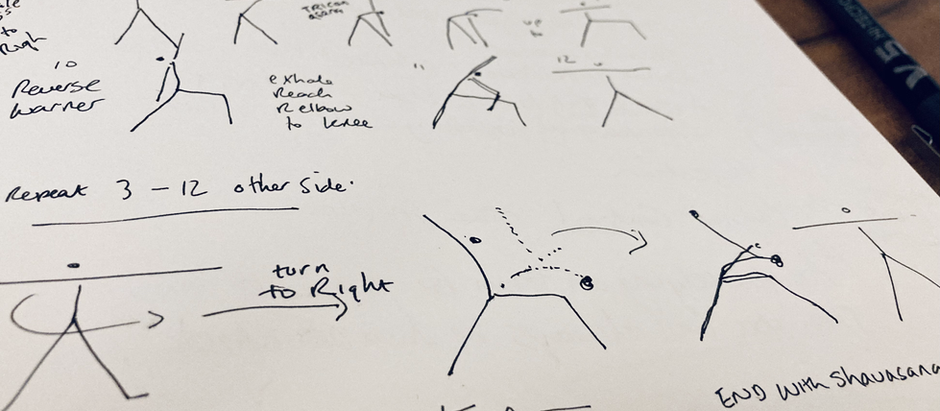 to
Right
Tricon
asana
up
to
10
Reverse
Warrier
exhale
Reach
R elbow
to knee
11
12
Repeat 3 - 12 other side.
turn
to Right
END with Shavasana
V5